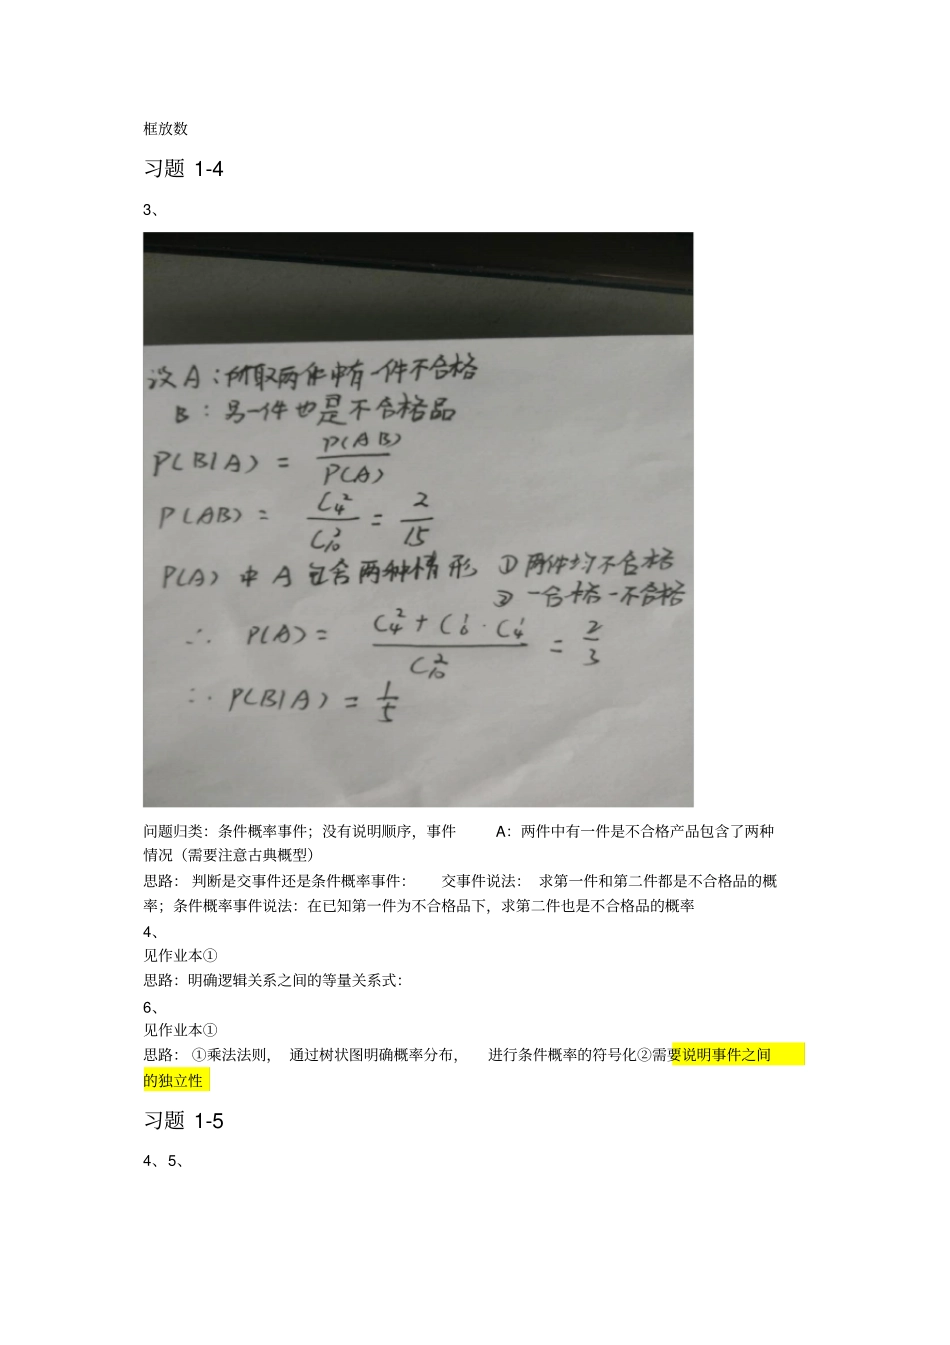 框放数
习题 1-4
3、
设A：所取两件中有一件不合格
B：另一件也是不合格品
P(B|A) = P(AB)/P(A)
P(AB) = C₄²/C₁₀² = 2/15
P(A)中A包含两种情形 ①两件均不合格
②一合格一不合格
∴ P(A) = (C₄²+C₆¹·C₄¹)/C₁₀² = 2/3
∴ P(B|A) = 1/5
问题归类：条件概率事件；没有说明顺序，事件 A：两件中有一件是不合格产品包含了两种
情况（需要注意古典概型）
思路： 判断是交事件还是条件概率事件： 交事件说法： 求第一件和第二件都是不合格品的概
率；条件概率事件说法：在已知第一件为不合格品下，求第二件也是不合格品的概率
4、
见作业本①
思路：明确逻辑关系之间的等量关系式：
6、
见作业本①
思路： ①乘法法则， 通过树状图明确概率分布， 进行条件概率的符号化②需要说明事件之间
的独立性
习题 1-5
4、5、